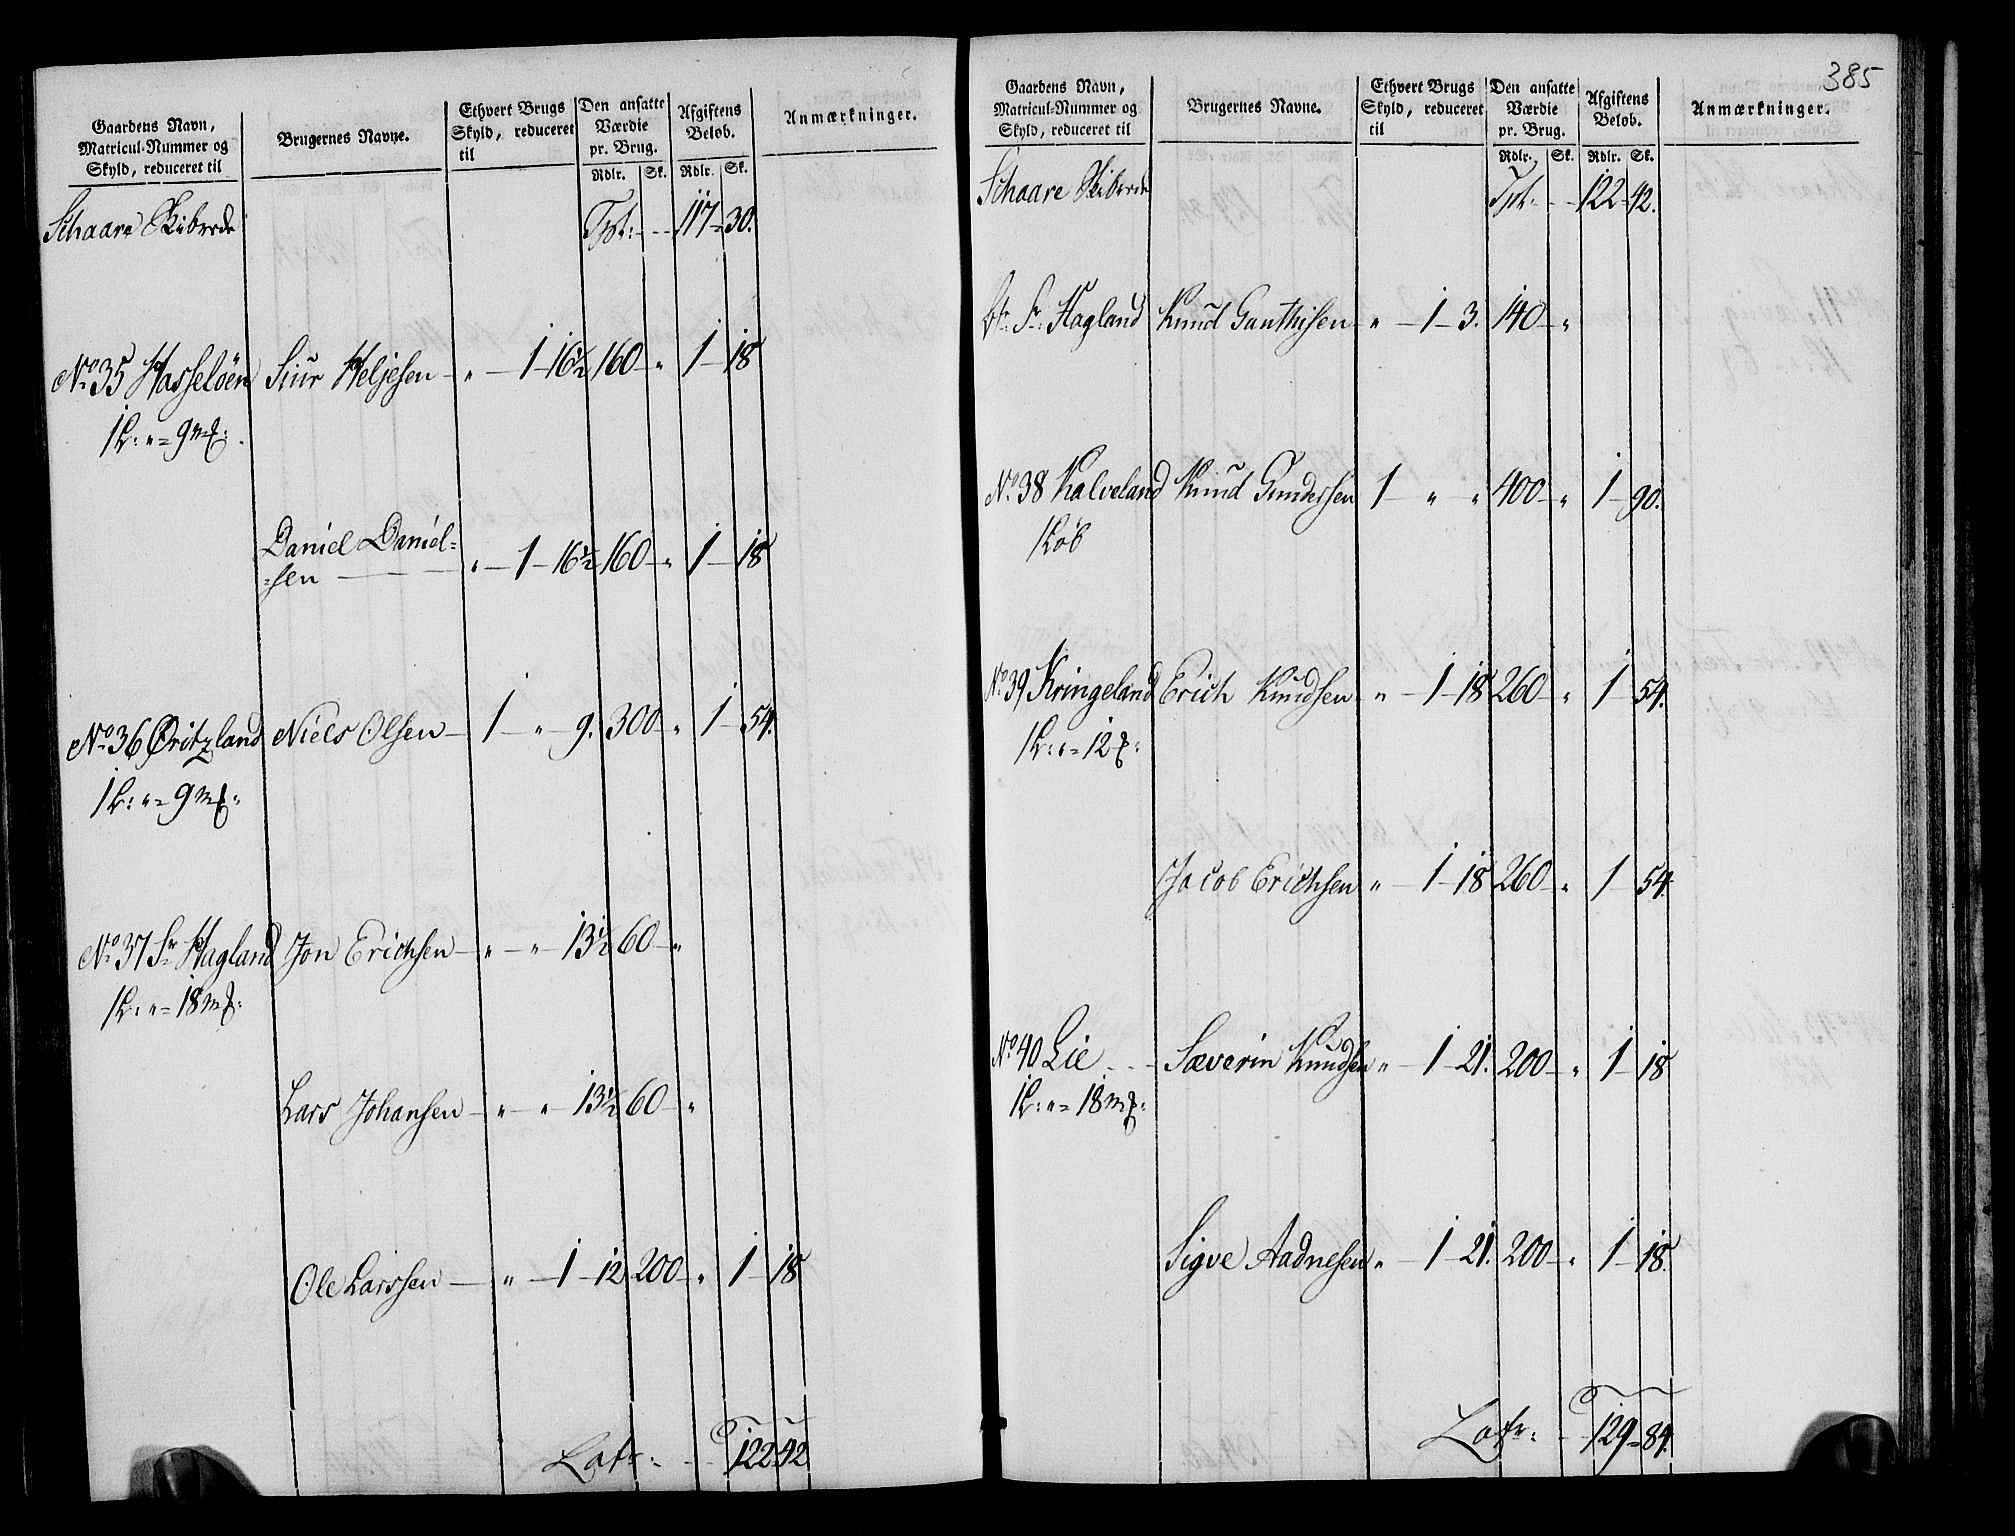 Gaardens Navn,
Matricul-Nummer og
Skyld, reduceret til
Brugernes Navne.
Ethvert Brugs
Skyld, reduceret
til
Den ansatte
Værdie
pr. Brug.
Rdlr. Sk.
Afgiftens
Beløb.
Rdlr. Sk.
Anmærkninger.
Schaare Skibrede Tpt: 117 = 30.
No 35 Hasseløen Siur Heljesen „ 1 16½ 160 „ 1 18
1 L: „ = 9 m
Daniel Daniel=
=sen „ 1 16½ 160 „ 1 18
No 36 Øritzland Niels Olsen 1 „ 9. 300 „ 1 54.
1 L: „ = 9 m
No 37 Sr Hagland Jon Erichsen „ „ 13½ 60 „
1 L: „ = 18 m
Lars Johansen „ „ 13½ 60 „
Ole Larssen „ 1 12 200 „ 1 18
Latr: 122 42
385
Gaardens Navn,
Matricul-Nummer og
Skyld, reduceret til
Brugernes Navne.
Ethvert Brugs
Skyld, reduceret
til
Den ansatte
Værdie
pr. Brug.
Rdlr. Sk.
Afgiftens
Beløb.
Rdlr. Sk.
Anmærkninger.
Schaare Skibrede Tpt: 122 42.
Sr: Hagland Knud Gauthisen „ 1 3. 140 „
No 38 Kalveland Knud Gundersen 1 „ „ 400 „ 1 90.
1 Løb
No 39 Kringeland Erich Knudsen „ 1 18 260 „ 1 54.
1 L: „ = 12
Jacob Erichsen „ 1 18 260 „ 1 54.
No 40 Lie Sæverin Knudsen „ 1 21. 200 „ 1 18
1 L: „ = 18 m
Sigve Aadnesen „ 1 21. 200 „ 1 18.
Latr: 129 = 84.